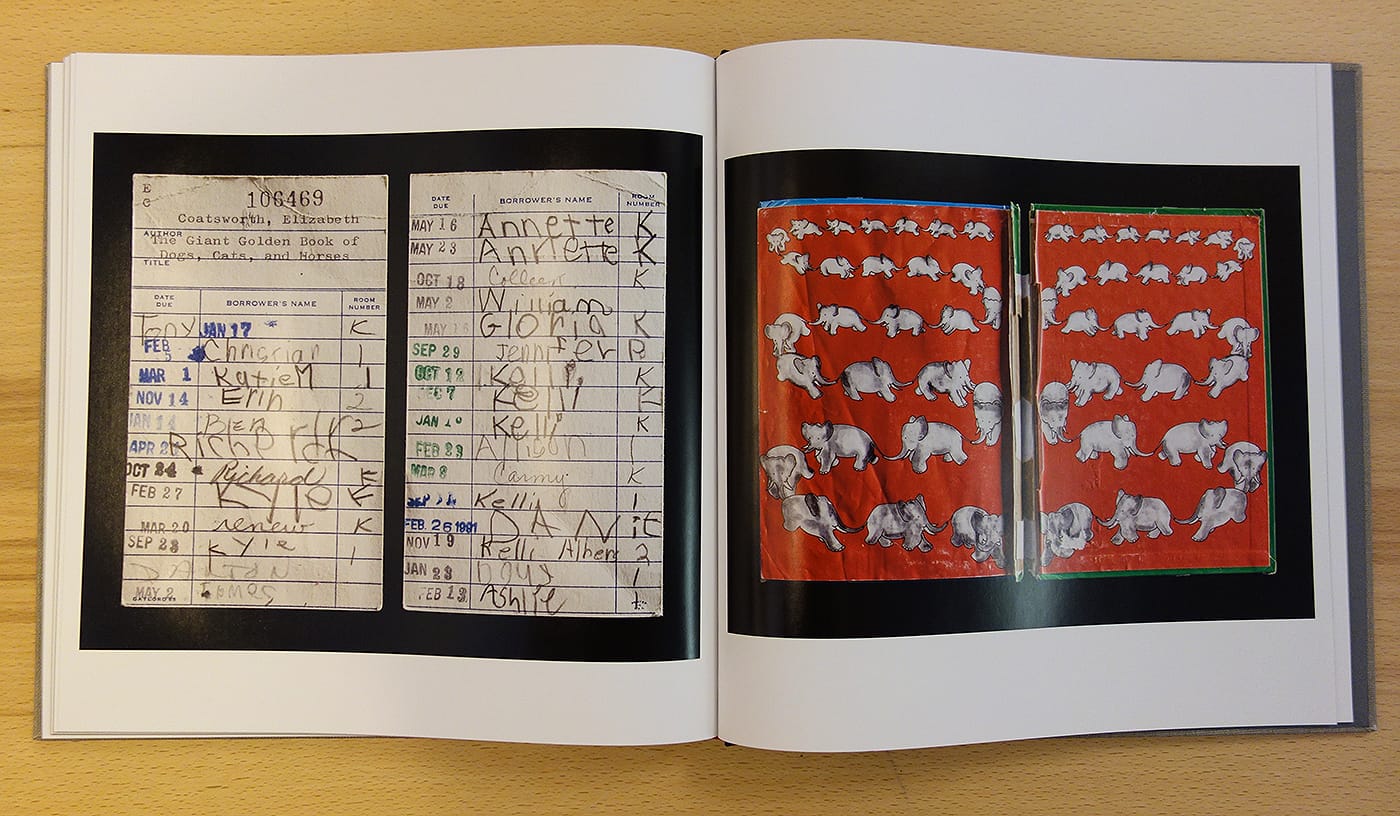 E
C
106469
Coatsworth, Elizabeth
AUTHOR
The Giant Golden Book of
Dogs, Cats, and Horses
TITLE
DATE DUE BORROWER'S NAME ROOM NUMBER
Tony JAN 17 K
FEB 5 Christian 1
MAR 1 Katie M 1
NOV 14 Erin 2
JAN 14 Ben 2
APR Richard
OCT 24 Richard K
FEB 27 Kyle K
MAR 20 K
SEP 23 Kyle 1
DALTON
MAY 2 James
GAYLORD
DATE DUE BORROWER'S NAME ROOM NUMBER
MAY 16 Annette K
MAY 23 Annette K
OCT 18 Colleen K
MAY 2 William
MAY 16 Gloria K
SEP 29 Jennifer B
OCT 12 Kelli K
FEB 7 Kelli K
JAN 10 Kelli K
FEB 23 Allison 1
MAR 8 K
SEP Kelli 1
FEB. 26 1991 DAN it
NOV 19 Kelli 2
JAN 23 1
FEB 13 Ashlie 1